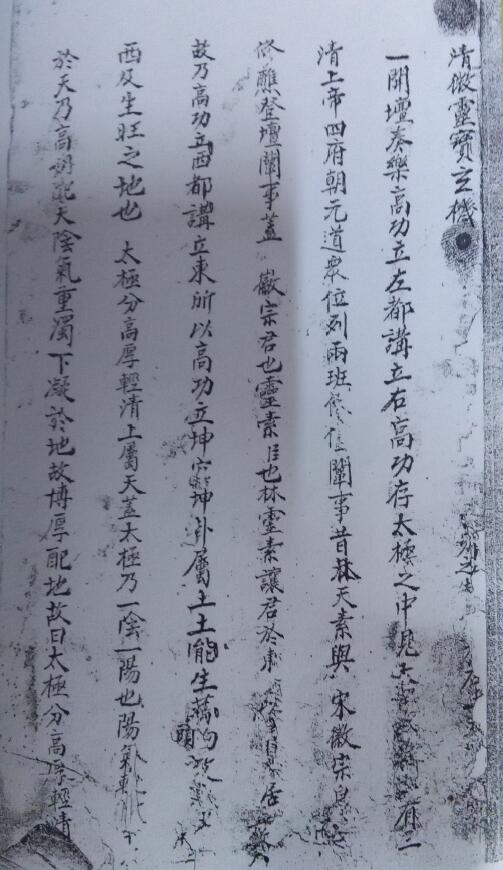 清微靈寶玄機
一開壇奏樂高功立左都講立右高功存太極之中見
清上帝四府朝元道眾位列兩班 闡事昔林天素與 宋徽宗
修醮登壇闡事蓋 徽宗君也靈素臣也林靈素讓君於東 居
故乃高功立西都講立東所以高功立坤宮坤卦屬土土能生萬物故
西及生旺之地也 太極分高厚輕清上屬天蓋太極乃一陰一陽也陽氣輕
於天乃高明配天陰氣重濁下凝於地故博厚配地故曰太極分高厚輕清